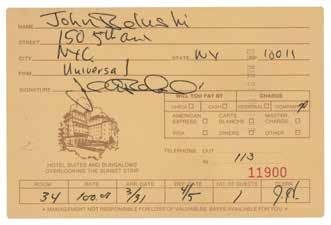 NAME John Belushi
STREET 150 5th ave
CITY NYC STATE NY ZIP 10011
FIRM Universal
SIGNATURE
WILL YOU PAY BY CHARGE
CHECK CASH PERSONAL COMPANY
AMERICAN EXPRESS CARTE BLANCHE MASTER CHARGE
VISA DINERS OTHER
TELEPHONE OUT
IN 113
HOTEL SUITES AND BUNGALOWS
OVERLOOKING THE SUNSET STRIP
11900
ROOM RATE ARR. DATE EXP. DATE NO. OF GUESTS CLERK
34 100.00 3/31 4/5 1
• MANAGEMENT NOT RESPONSIBLE FOR LOSS OF VALUABLES, SAFES AVAILABLE FOR YOU •